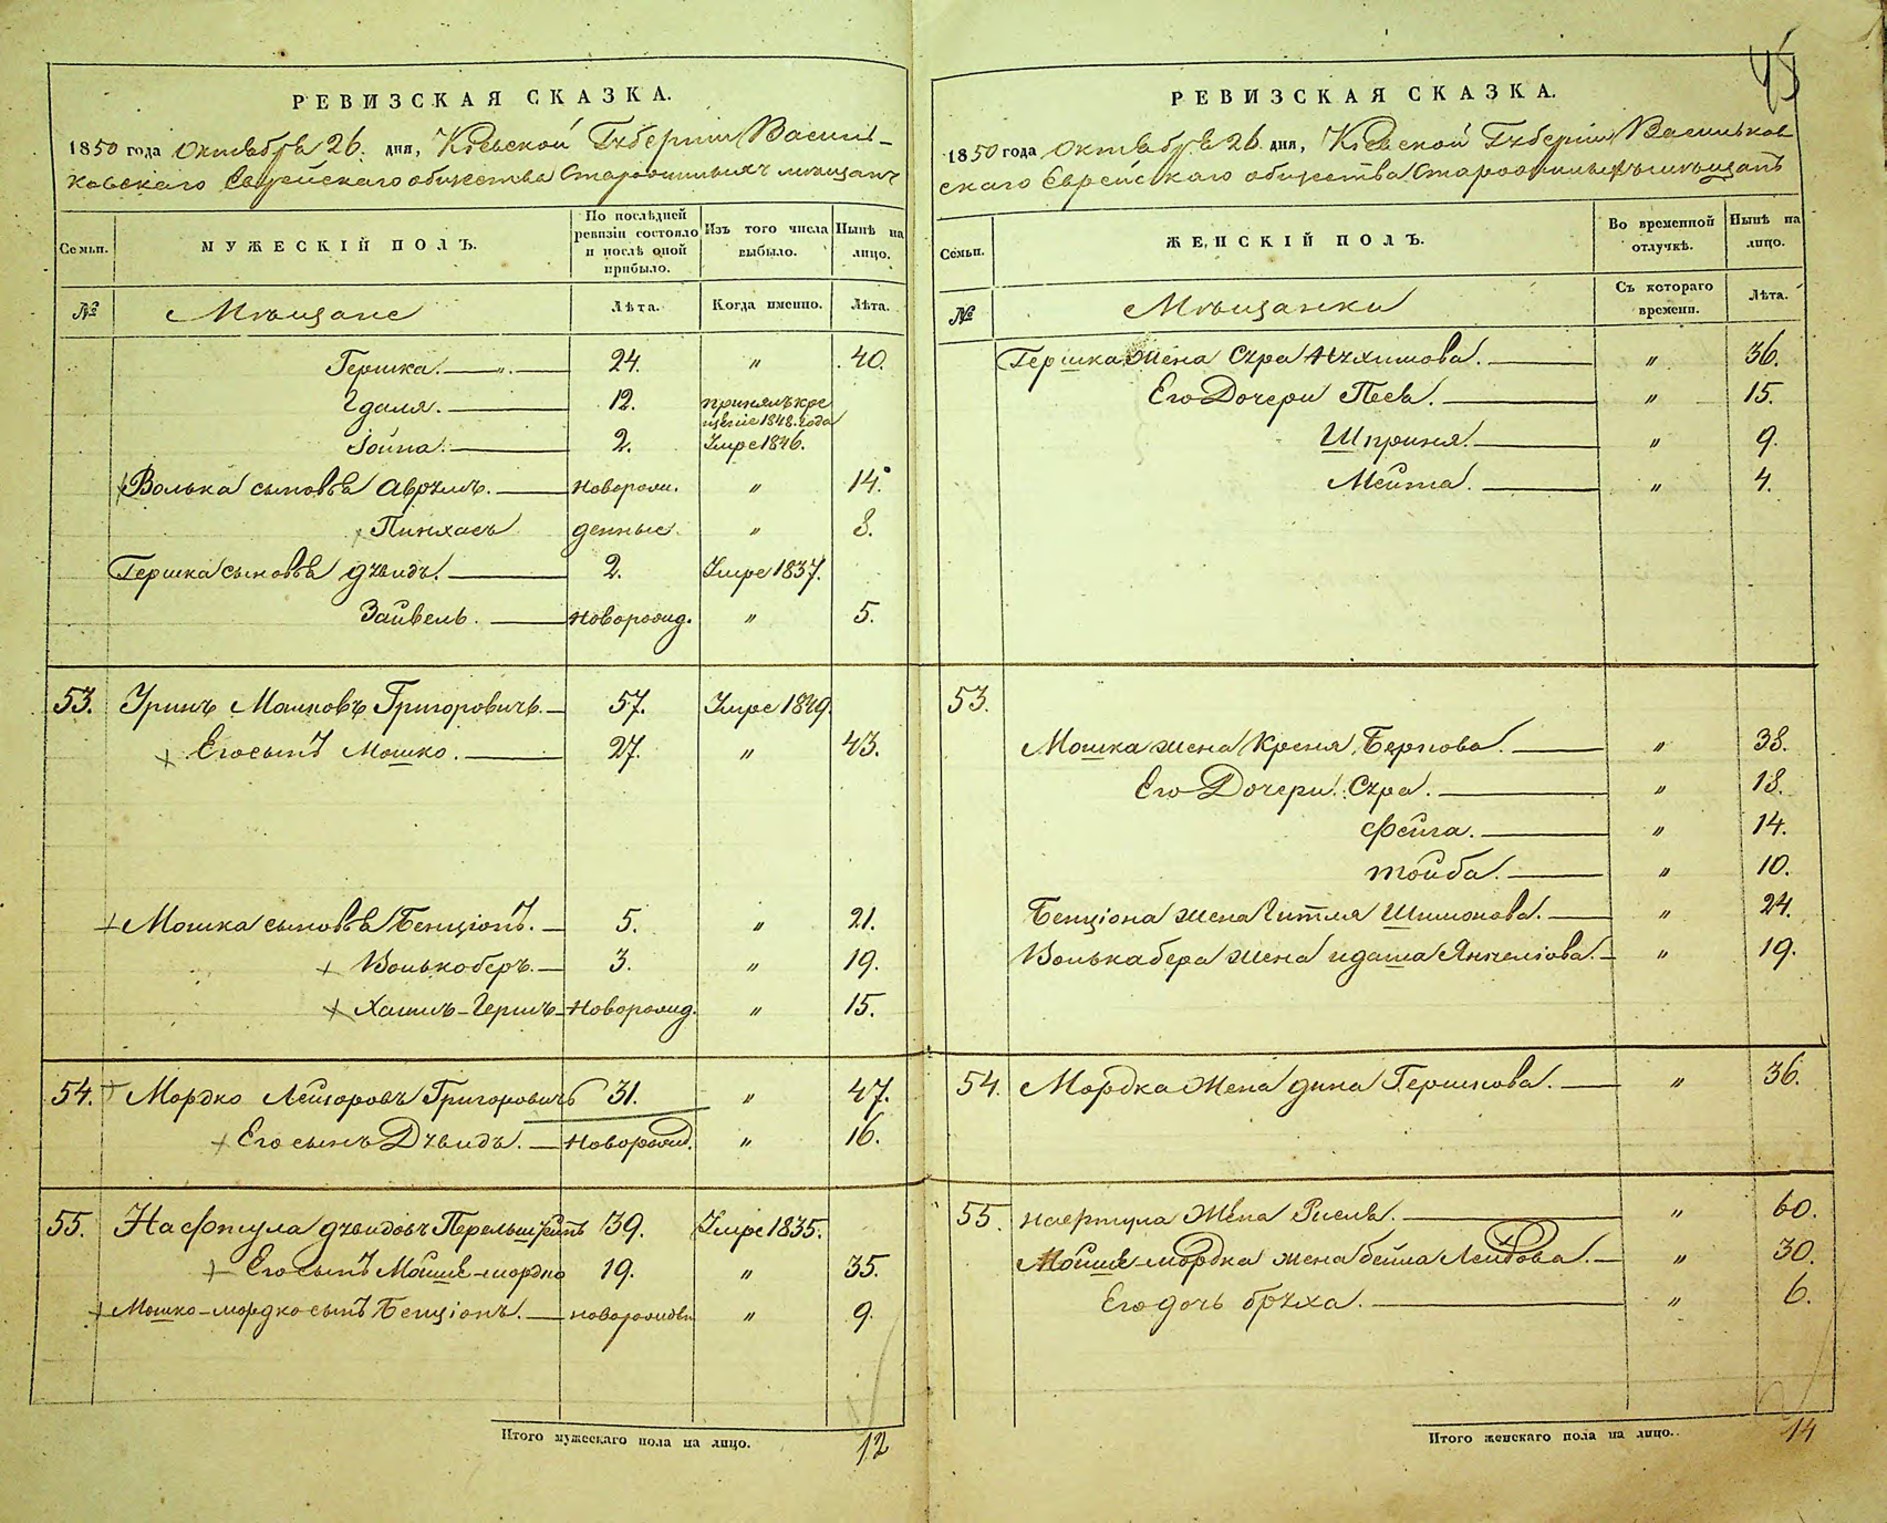 45
РЕВИЗСКАЯ СКАЗКА.
1850 года Октября 26. дня, Кіевской Губерніи Василь-
ковскаго Еврейскаго общества Старожилыхъ мѣщанъ
Семьи. МУЖЕСКІЙ ПОЛЪ. По послѣдней ревизіи состояло и послѣ оной прибыло. Изъ того числа выбыло. Нынѣ на лицо.
№ Мѣщане Лѣта. Когда именно. Лѣта.
Гершка. — " — 24. " 40.
Гдаля. — 12. принялъ кре
щеніе 1848. года
Іойна. — 2. Умре 1846.
Волька сыновья Аврумъ. — новорож. " 14.
Пинхасъ денные. " 8.
Гершка сыновья Дувидъ. — 2. Умре 1837.
Зайвель. — новорожд. " 5.
53. Уринъ Мошковъ Григоровичъ. — 57. Умре 1849.
Его сынъ Мошко. — 27. " 43.
Мошка сыновья Бенціонъ. — 5. " 21.
Волькоберъ. — 3. " 19.
Хаимъ-Гершъ — новорожд. " 15.
54. Мордко Лейзоровъ Григоровичъ 31. " 47.
Его сынъ Дувидъ. — новорожд. " 16.
55. Нафтула Дувидовъ 39. Умре 1835.
Его сынъ Мойше-мордко 19. " 35.
Мошко-мордко сынъ Бенціонъ. — новорожден " 9.
Итого мужескаго пола на лицо. 12
РЕВИЗСКАЯ СКАЗКА.
1850 года Октября 26. дня, Кіевской Губерніи Васильков
скаго Еврейскаго общества Старожилыхъ мѣщанъ
Семьи. ЖЕНСКІЙ ПОЛЪ. Во временной отлучкѣ. Нынѣ на лицо.
№ Мѣщанки Съ котораго времени. Лѣта.
Гершка жена Сура Нухимова. — " 36.
Его Дочери Песя. — " 15.
Шприня. — " 9.
Мейта. — " 4.
53.
Мошка жена Креня Беркова. — " 38.
Его Дочери Сура. — " 18.
Фейга. — " 14.
Тойба. — " 10.
Бенціона жена Гитля Шимонова. — " 24.
Волькабера жена Идаша Янкеліова. — " 19.
54. Мордка Жена Дина Гершкова. — " 36.
55. Нафтула Жена Рисля. — " 60.
Мойше-мордка жена бейла Лейбова. — " 30.
Его дочь Бруха. — " 6.
Итого женскаго пола на лицо. 14